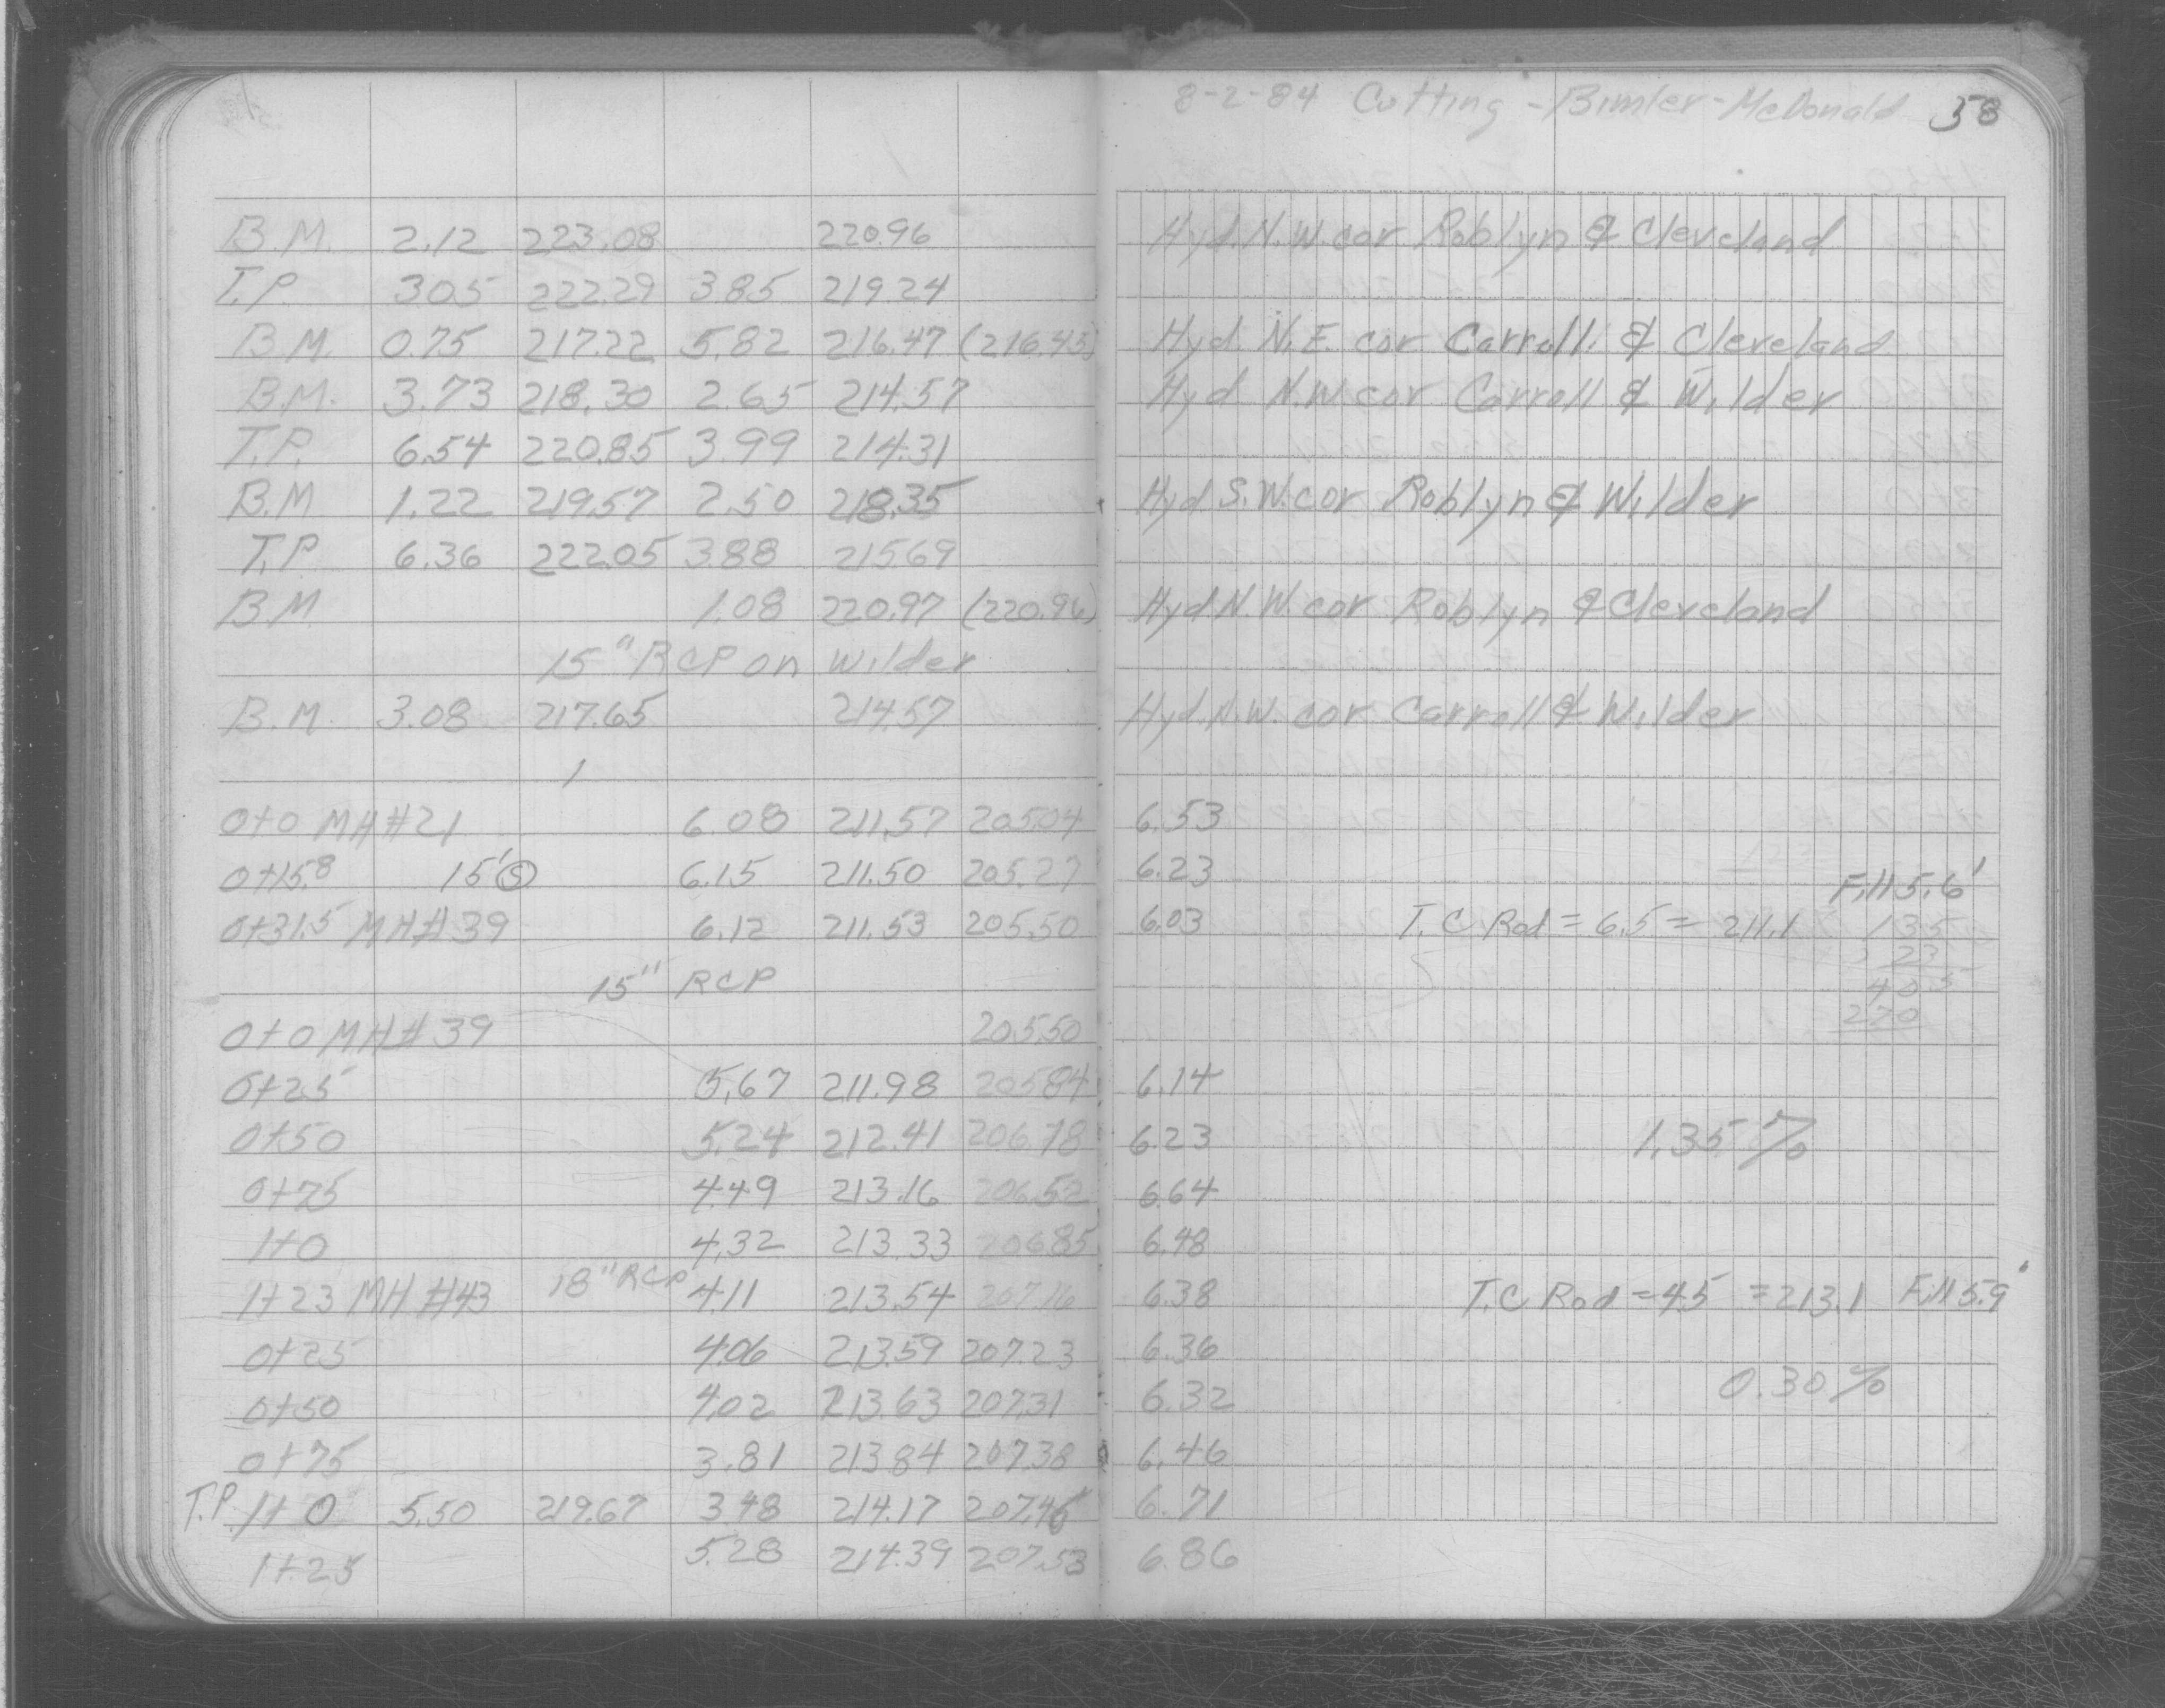 8-2-84 Cutting - Bimler - McDonald 58
B.M. 2.12 223.08 220.96 Hyd. N.W. cor Roblyn & Cleveland
T.P. 3.05 222.29 3.85 219.24
B.M. 0.75 217.22 5.82 216.47 (216.45) Hyd. N.E. cor. Carroll & Cleveland
B.M. 3.73 218.30 2.65 214.57 Hyd N.W. cor Carroll & Wilder
T.P. 6.54 220.85 3.99 214.31
B.M. 1.22 219.57 2.50 218.35 Hyd S.W. cor Roblyn & Wilder
T.P. 6.36 222.05 3.88 215.69
B.M. 1.08 220.97 (220.96) Hyd N.W. cor Roblyn & Cleveland
15" RCP on Wilder
B.M. 3.08 217.65 214.57 Hyd. N.W. cor Carroll & Wilder
0+0 MH #21 6.08 211.57 205.04 6.53
0+15.8 15' S 6.15 211.50 205.27 6.23 Fill 5.6'
0+31.5 MH #39 6.12 211.53 205.50 6.03 T.C Rod = 6.5 = 211.1 135
23
15" RCP 405
0+0 MH #39 205.50 270
0+25 5.67 211.98 205.84 6.14
0+50 5.24 212.41 206.18 6.23 1.35 %
0+75 4.49 213.16 206.52 6.64
1+0 4.32 213.33 206.85 6.48
1+23 MH #43 18" RCP 4.11 213.54 207.16 6.38 T.C Rod = 4.5 = 213.1 Fill 5.9'
0+25 4.06 213.59 207.23 6.36
0+50 4.02 213.63 207.31 6.32 0.30 %
0+75 3.81 213.84 207.38 6.46
T.P. 1+0 5.50 219.67 3.48 214.17 207.46 6.71
1+25 5.28 214.39 207.53 6.86